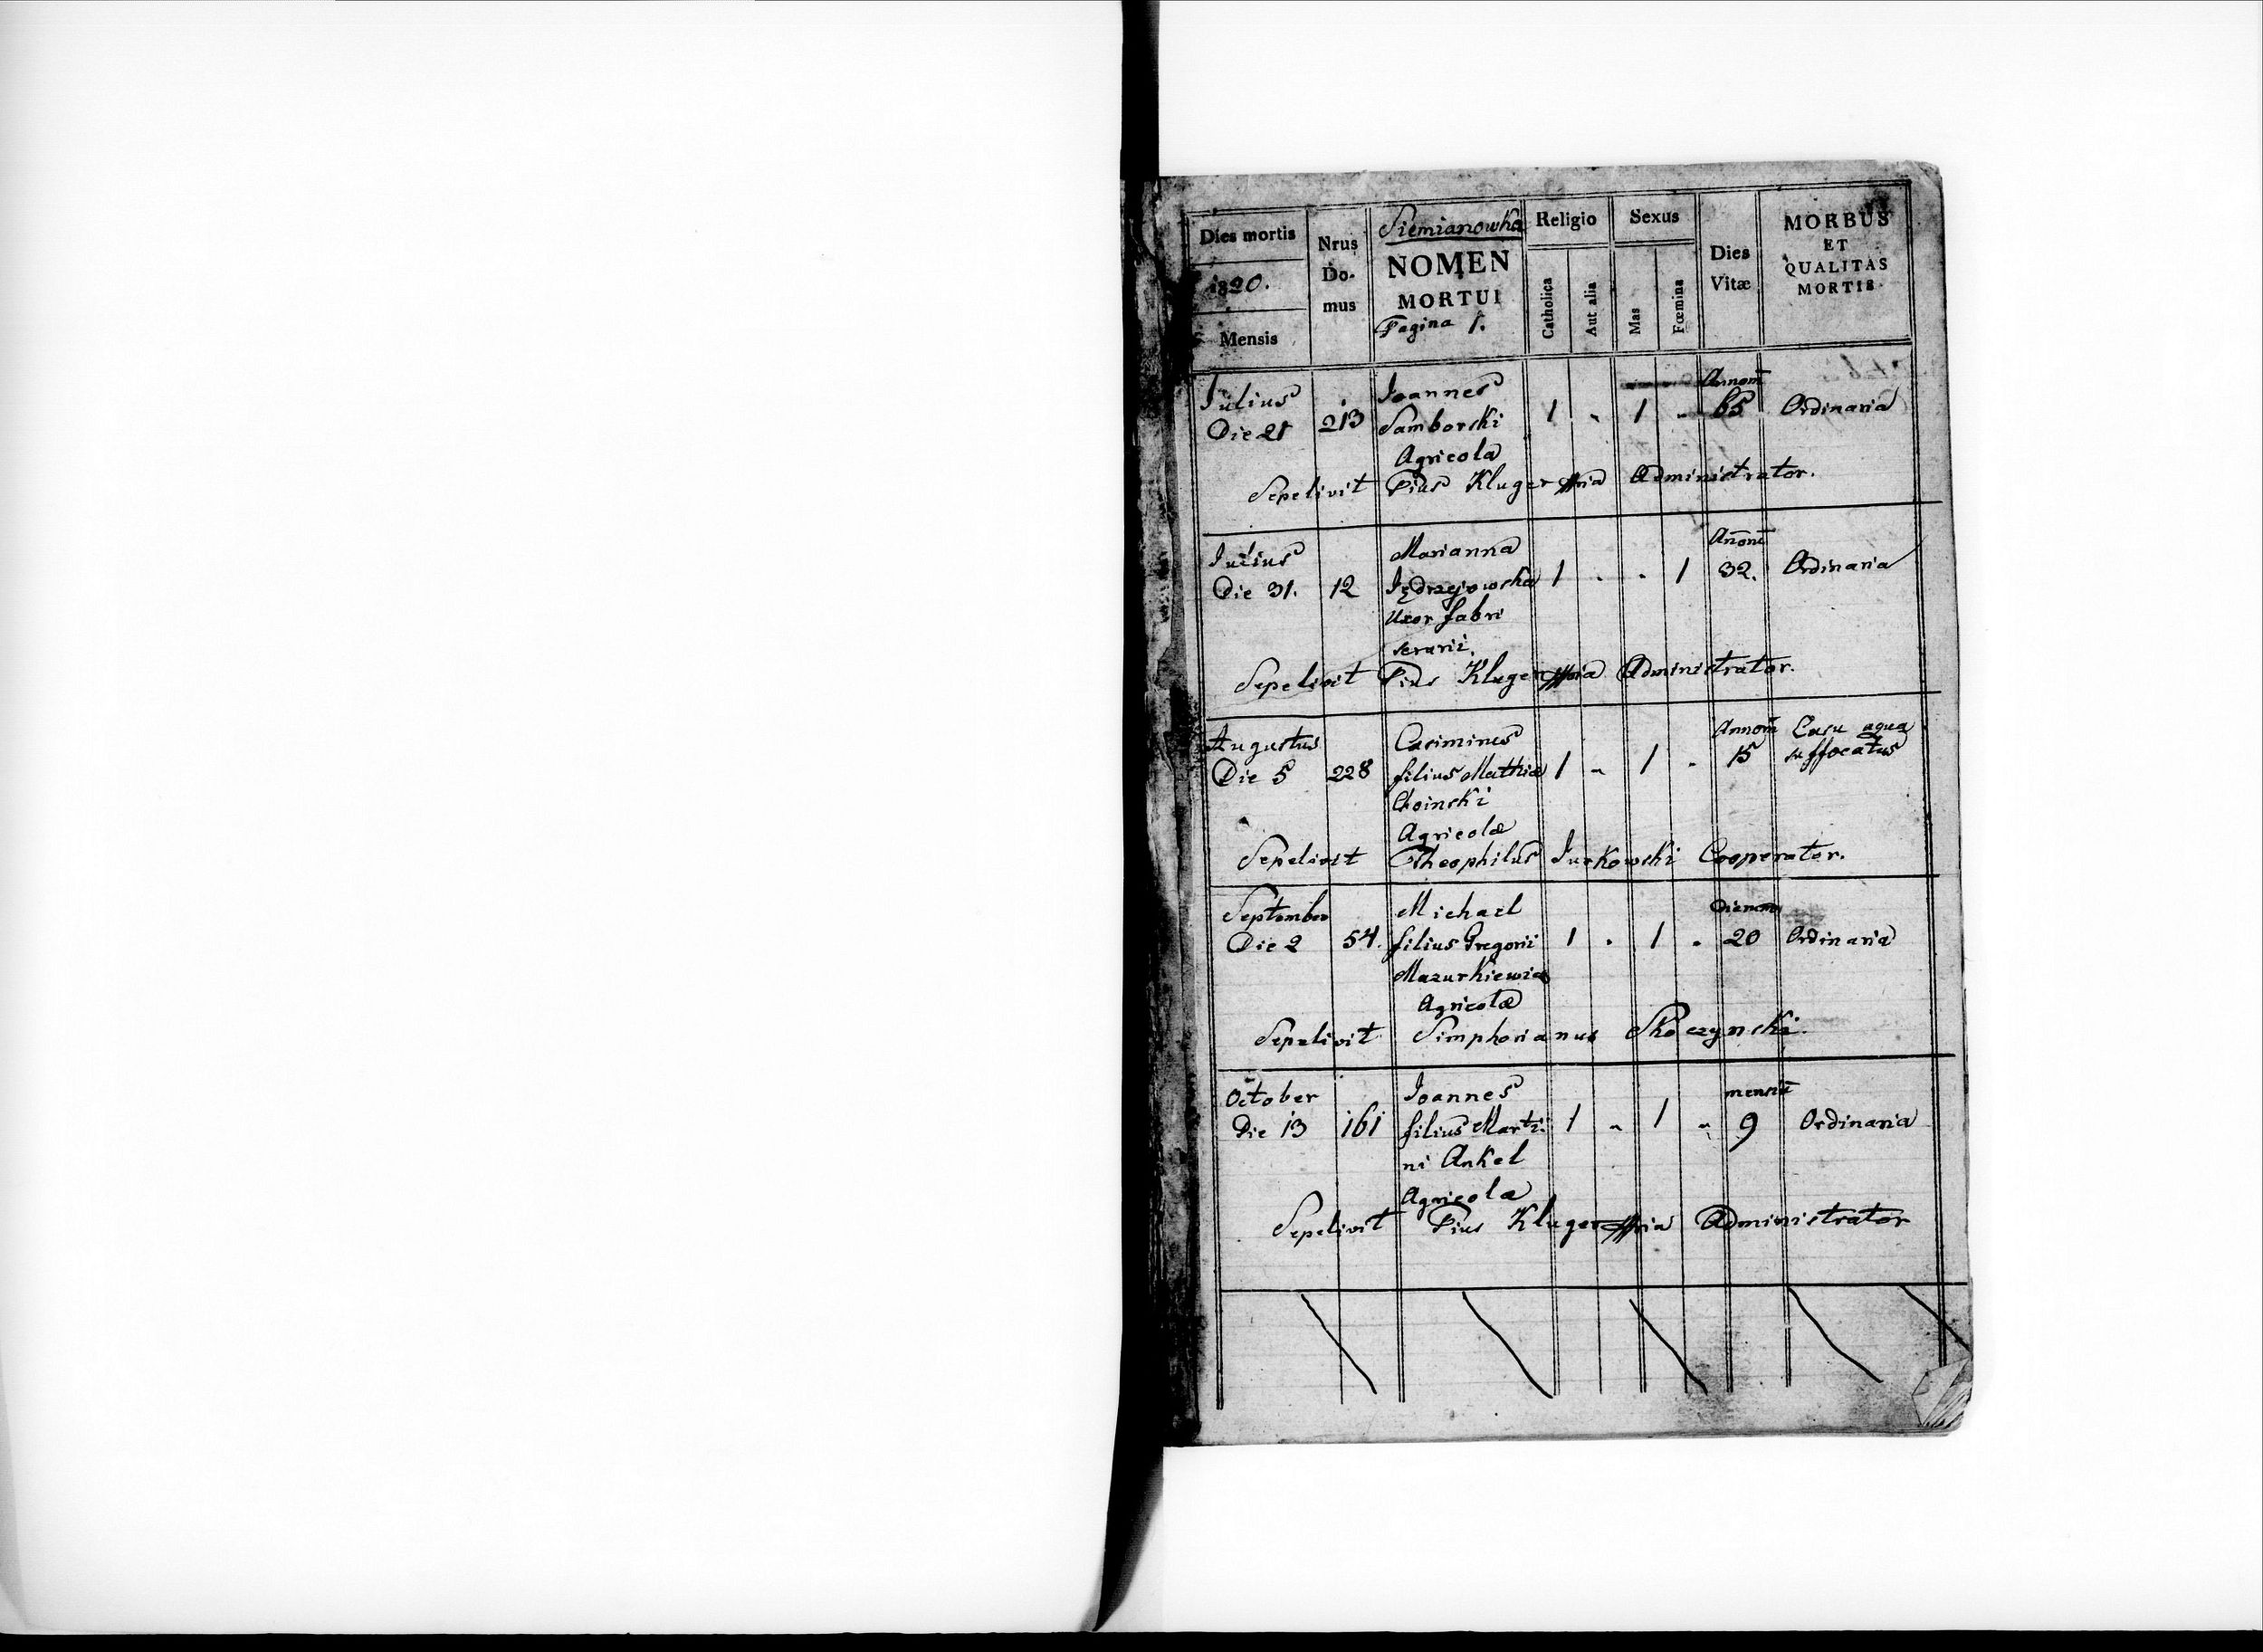 Dies mortis
1820.
Mensis
Nrus
Do-
mus
Siemianowka
NOMEN
MORTUI
Pagina 1.
Religio
Catholica
Aut alia
Sexus
Mas
Fœmina
Dies
Vitæ
MORBUS
ET
QUALITAS
MORTIS
Julius Joannes Annom̄
Die 21 213 Samborski 1 „ 1 „ 65 Ordinaria
Agricola
Sepelivit Pius Kluger Administrator.
Julius Marianna Anom̄
Die 31. 12 Jędrzejowska 1 . . 1 32. Ordinaria
Uxor fabri
serarii.
Sepelivit Pius Kluger Administrator.
Augustus Casimirus Annom̄ Casu aqua
Die 5 228 filius Mathiæ 1 „ 1 „ 15 suffocatus
Choinski
Agricolæ
Sepelivit Theophilus Jurkowski Cooperator.
September Michael Dierum
Die 2 54. filius Gregorii 1 . 1 . 20 Ordinaria
Mazurkiewicz
Agricolæ
Sepelivit Simphorianus Skoczynski.
October Joannes mensiū
Die 13 161 filius Marti- 1 „ 1 „ 9 Ordinaria
ni Ankel
Agricolæ
Sepelivit Pius Kluger Administrator